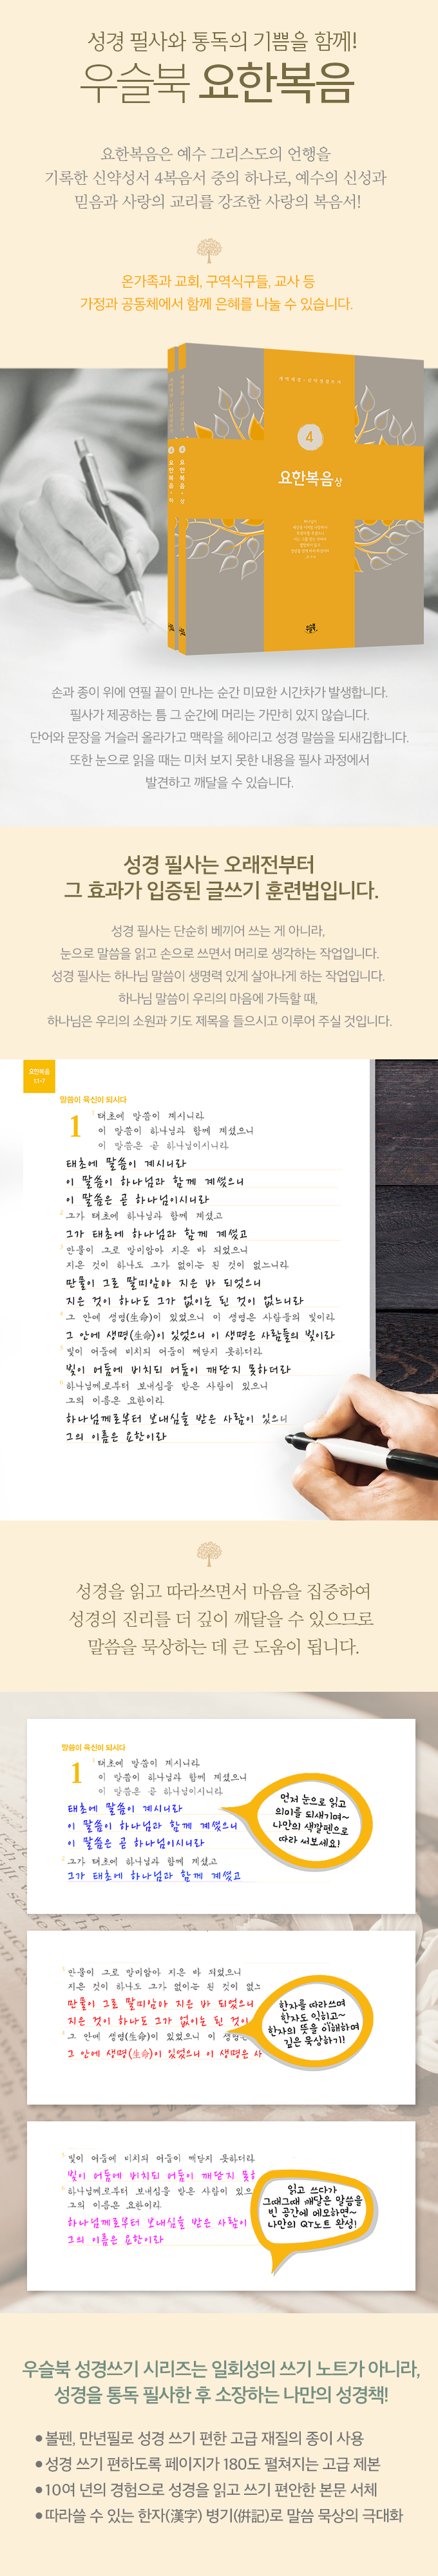 성경 필사와 통독의 기쁨을 함께!
우슬북 요한복음
요한복음은 예수 그리스도의 언행을
기록한 신약성서 4복음서 중의 하나로, 예수의 신성과
믿음과 사랑의 교리를 강조한 사랑의 복음서!
온가족과 교회, 구역식구들, 교사 등
가정과 공동체에서 함께 은혜를 나눌 수 있습니다.
4
요한복음상
4 요한복음·하
4 요한복음·상
우슬북
손과 종이 위에 연필 끝이 만나는 순간 미묘한 시간차가 발생합니다.
필사가 제공하는 틈 그 순간에 머리는 가만히 있지 않습니다.
단어와 문장을 거슬러 올라가고 맥락을 헤아리고 성경 말씀을 되새김합니다.
또한 눈으로 읽을 때는 미처 보지 못한 내용을 필사 과정에서
발견하고 깨달을 수 있습니다.
성경 필사는 오래전부터
그 효과가 입증된 글쓰기 훈련법입니다.
성경 필사는 단순히 베끼어 쓰는 게 아니라,
눈으로 말씀을 읽고 손으로 쓰면서 머리로 생각하는 작업입니다.
성경 필사는 하나님 말씀이 생명력 있게 살아나게 하는 작업입니다.
하나님 말씀이 우리의 마음에 가득할 때,
하나님은 우리의 소원과 기도 제목을 들으시고 이루어 주실 것입니다.
요한복음
1:1-7
말씀이 육신이 되시다
1 1 태초에 말씀이 계시니라
이 말씀이 하나님과 함께 계셨으니
이 말씀은 곧 하나님이시니라
태초에 말씀이 계시니라
이 말씀이 하나님과 함께 계셨으니
이 말씀은 곧 하나님이시니라
2 그가 태초에 하나님과 함께 계셨고
그가 태초에 하나님과 함께 계셨고
3 만물이 그로 말미암아 지은 바 되었으니
지은 것이 하나도 그가 없이는 된 것이 없느니라
만물이 그로 말미암아 지은 바 되었으니
지은 것이 하나도 그가 없이는 된 것이 없느니라
4 그 안에 생명(生命)이 있었으니 이 생명은 사람들의 빛이라
그 안에 생명(生命)이 있었으니 이 생명은 사람들의 빛이라
5 빛이 어둠에 비치되 어둠이 깨닫지 못하더라
빛이 어둠에 비치되 어둠이 깨닫지 못하더라
6 하나님께로부터 보내심을 받은 사람이 있으니
그의 이름은 요한이라
하나님께로부터 보내심을 받은 사람이 있으니
그의 이름은 요한이라
성경을 읽고 따라쓰면서 마음을 집중하여
성경의 진리를 더 깊이 깨달을 수 있으므로
말씀을 묵상하는 데 큰 도움이 됩니다.
말씀이 육신이 되시다
1 1 태초에 말씀이 계시니라
이 말씀이 하나님과 함께 계셨으니
이 말씀은 곧 하나님이시니라
태초에 말씀이 계시니라
이 말씀이 하나님과 함께 계셨으니
이 말씀은 곧 하나님이시니라
2 그가 태초에 하나님과 함께 계셨고
그가 태초에 하나님과 함께 계셨고
먼저 눈으로 읽고
의미를 되새기며~
나만의 색깔펜으로
따라 써보세요!
3 만물이 그로 말미암아 지은 바 되었으니
지은 것이 하나도 그가 없이는 된 것이 없느
만물이 그로 말미암아 지은 바 되었으니
지은 것이 하나도 그가 없이는 된 것이
4 그 안에 생명(生命)이 있었으니 이 생명은
그 안에 생명(生命)이 있었으니 이 생명은 사
한자를 따라쓰며
한자도 익히고~
한자의 뜻을 이해하여
깊은 묵상하기!!
5 빛이 어둠에 비치되 어둠이 깨닫지 못하더라
빛이 어둠에 비치되 어둠이 깨닫지 못하
6 하나님께로부터 보내심을 받은 사람이 있으
그의 이름은 요한이라
하나님께로부터 보내심을 받은 사람이
그의 이름은 요한이라
읽고 쓰다가
그때그때 깨달은 말씀을
빈 공간에 메모하면~
나만의 QT노트 완성!
우슬북 성경쓰기 시리즈는 일회성의 쓰기 노트가 아니라,
성경을 통독 필사한 후 소장하는 나만의 성경책!
● 볼펜, 만년필로 성경 쓰기 편한 고급 재질의 종이 사용
● 성경 쓰기 편하도록 페이지가 180도 펼쳐지는 고급 제본
● 10여 년의 경험으로 성경을 읽고 쓰기 편안한 본문 서체
● 따라쓸 수 있는 한자(漢字) 병기(倂記)로 말씀 묵상의 극대화